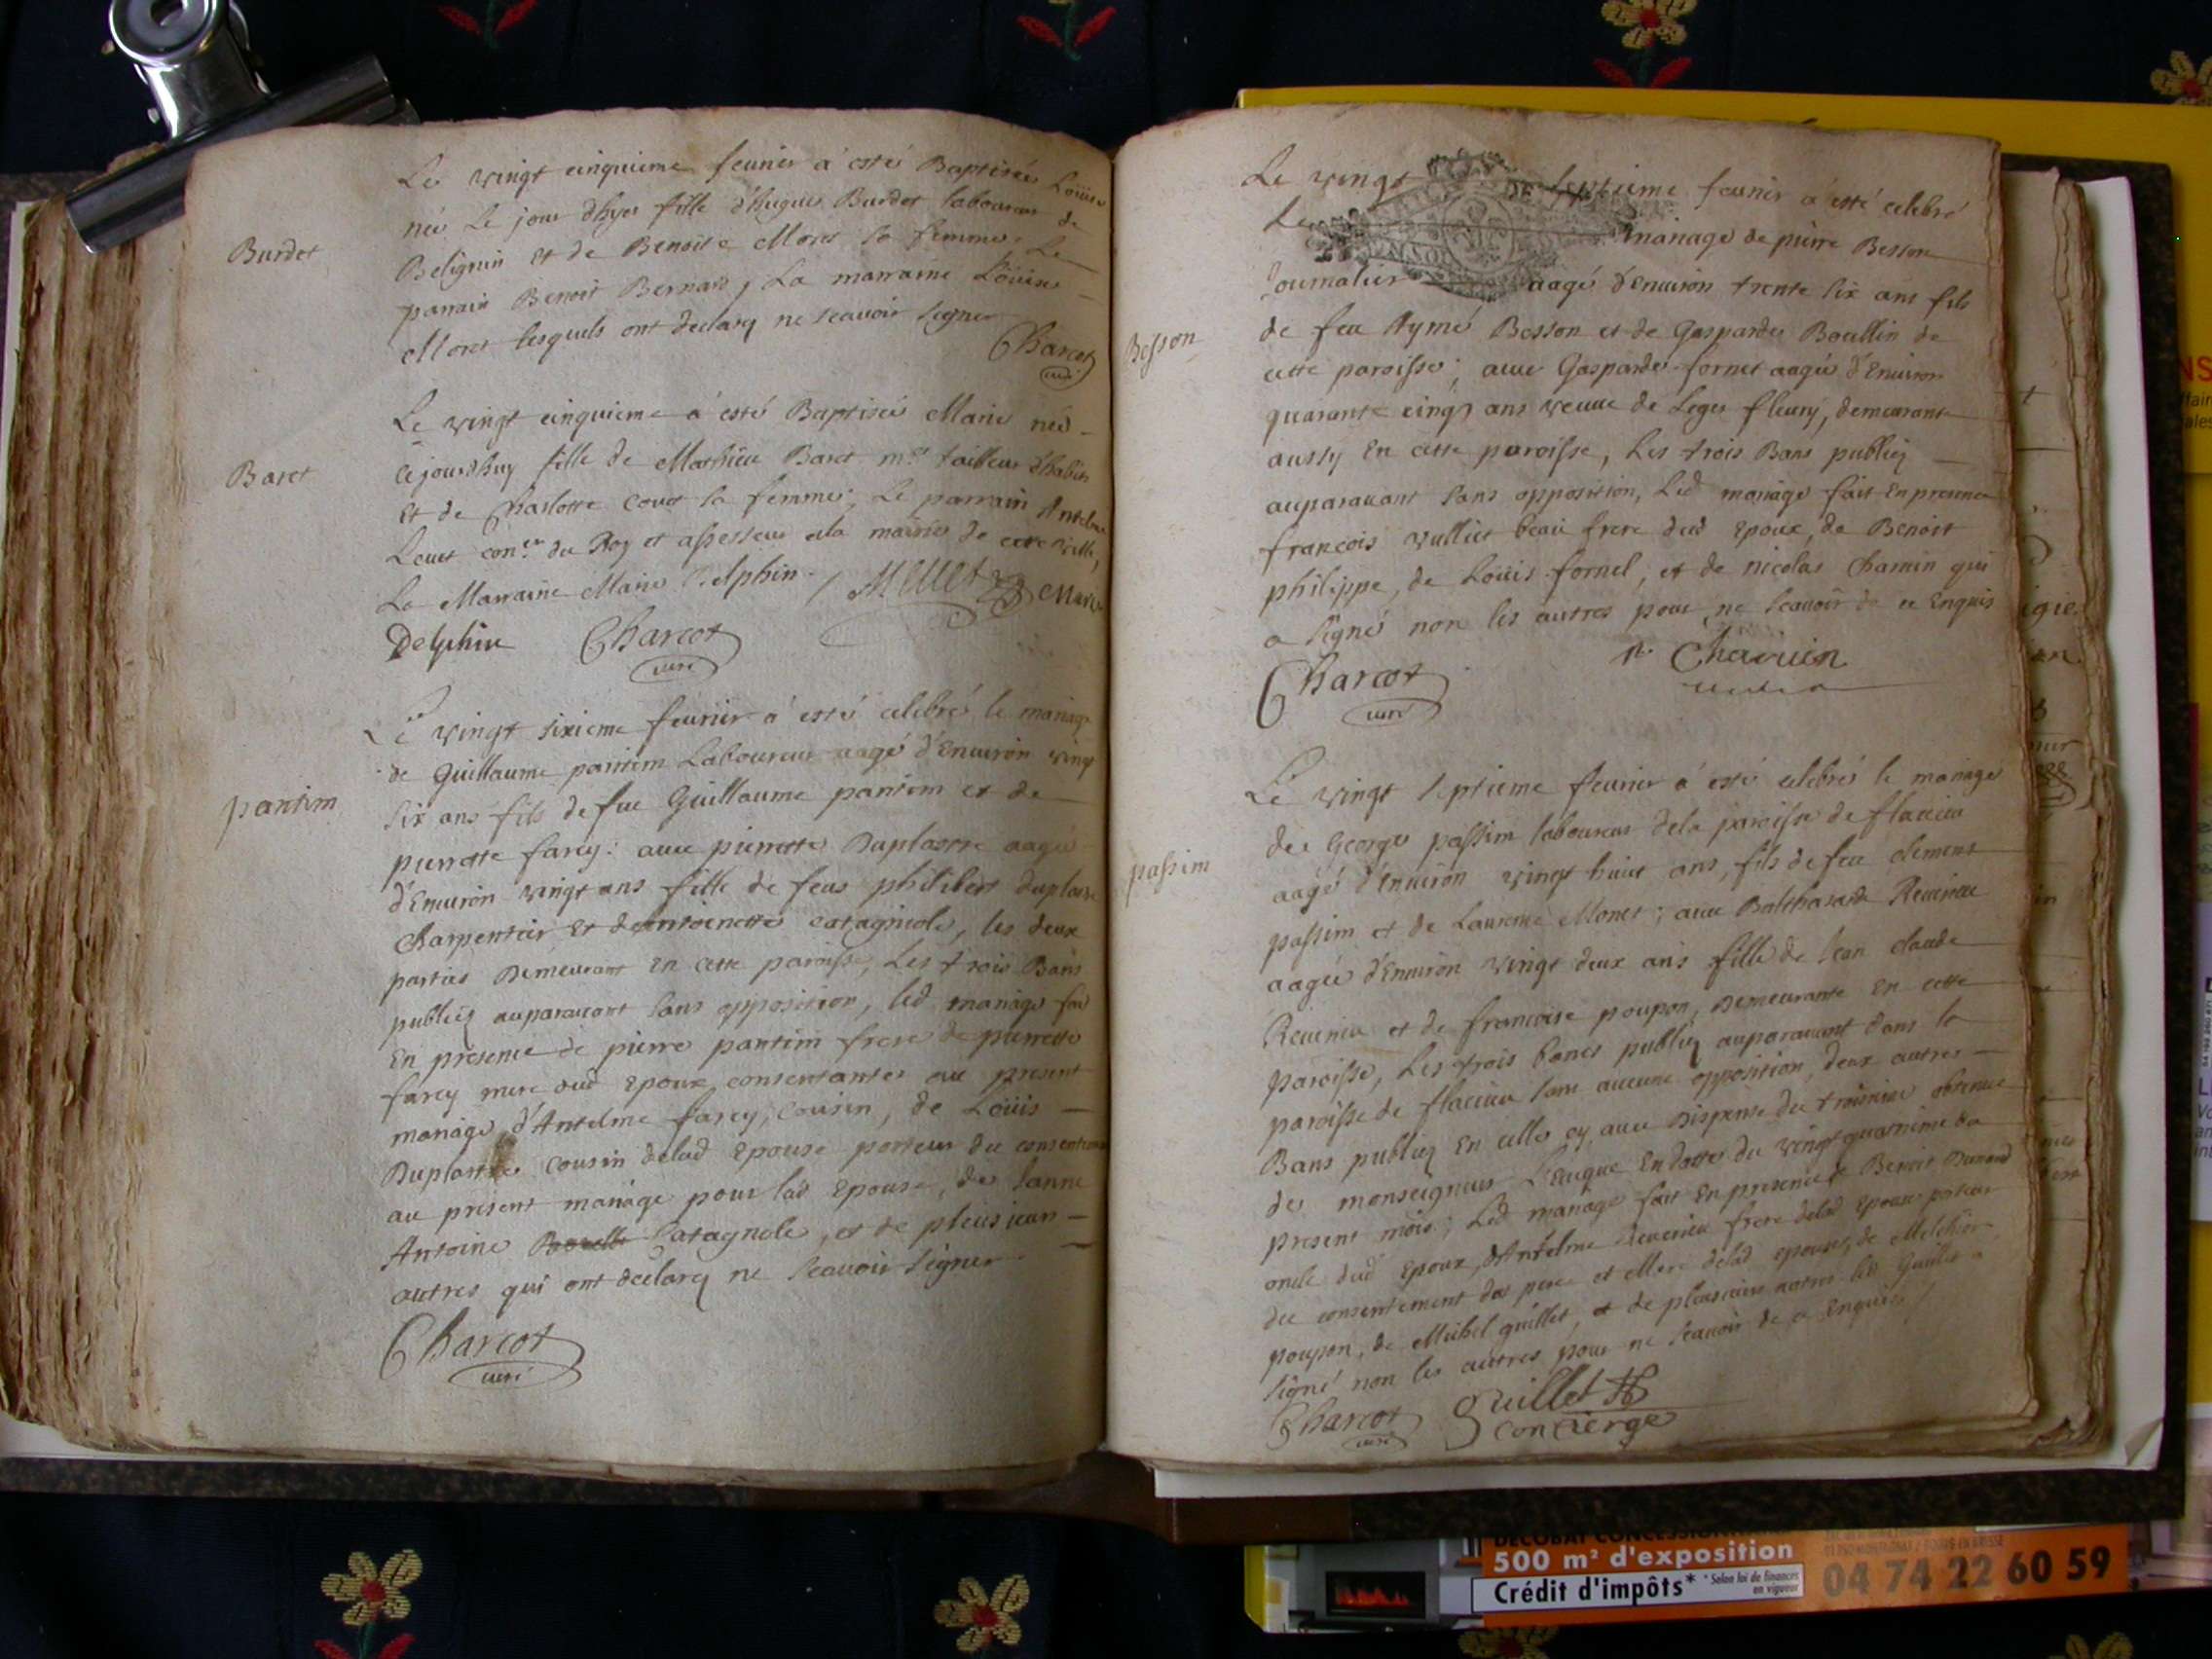 Le vingt cinquieme feurier a esté Baptisée Loüise
née Le jour dhyer fille d'hugue Burdet laboureur de
Burdet
Belignin et de Benoite Moret sa femme, Le
parrain Benoit Bernard, La marraine Loüise
Moret lesquels ont declaré ne scauoir signer
Charcot
curé
Le vingt cinquieme a esté Baptisée Marie née
Baret
cejourdhuy fille de Mathieu Baret mre tailleur d'habits
et de Charlotte Couet sa femme; Le parrain Antelme
con.er du Roy et assesseur a la mairie de cette ville,
La Marraine Marie Delphin. Marie
Delphin Charcot
curé
Le vingt sixieme feurier a esté celebré le mariage
de Guillaume pantim Laboureur aagé d'Enuiron vingt
pantim
six ans fils de feu Guillaume pantim et de
pierrette farcy: auec pierrette Duplastre aagée
d'Enuiron vingt ans fille de feus philibert duplastre
Charpentier et de antoinette catagnole, les deux
parties Demeurant en cette paroisse, Les trois Bans
publiez auparauant sans opposition, led. mariage fait
En presence de pierre pantim frere de pierrette
farcy mere dud Epoux consentante au present
mariage, d'Antelme farcy, cousin, de Loüis
Duplastre cousin delad Epouse porteur du consentement
au present mariage pour lad Epouse, de Janne
Antoine Catagnole, et de plusieurs
autres qui ont declaré ne scauoir signer
Charcot
curé
Le vingt septieme feurier a esté celebré
Le mariage de pierre Besson
Journalier aagé d'Enuiron trente six ans fils
Besson
de feu Aymé Besson et de Gasparde Boullin de
cette paroisse; auec Gasparde fornet aagée d'Enuiron
quarante cinq ans veuue de Leger fleury, demeurante
aussy En cette paroisse, Les trois Bans publiez
auparauant sans opposition, Led mariage fait En presence
françois vulliet beau frere dud Epoux, de Benoit
philippe, de Loüis fornel, et de nicolas Chamin qui
a signé non les autres pour ne scauoir de ce Enquis
Charcot
curé
Le vingt septieme feurier a esté celebré le mariage
de George passim laboureur dela paroisse de flaxieu
passim
aagé d'Enuiron vingt huict ans, fils de feu clement
passim et de Laurence Monet; auec Balthazarde Reuerieu
aagée d'Enuiron vingt deux ans fille de Jean claude
Reuerieu et de francoise poupon, Demeurante En cette
paroisse, Les trois bancs publiez auparauant dans la
paroisse de flaxieu sans aucune opposition, deux autres
Bans publiez En celle cy auec Dispense du troisieme obtenue
de monseigneur L'Euéque En datte du vingt quatrieme du
present mois; Led mariage fait En presence de Benoit Durand
oncle dud Epoux, d'Antelme Reuerieu frere delad Epouse porteur
du consentement des pere et Mere delad Epouse, de Melchior
poupon, de Michel guillet, et de plusieurs autres led Guillet a
signé non les autres pour ne scauoir de ce Enquis
Charcot guillet
curé concierge
DECOBAT CONCESSIONNAIRE
500 m² d'exposition
Crédit d'impôts* *Selon loi de finances
en vigueur
04 74 22 60 59